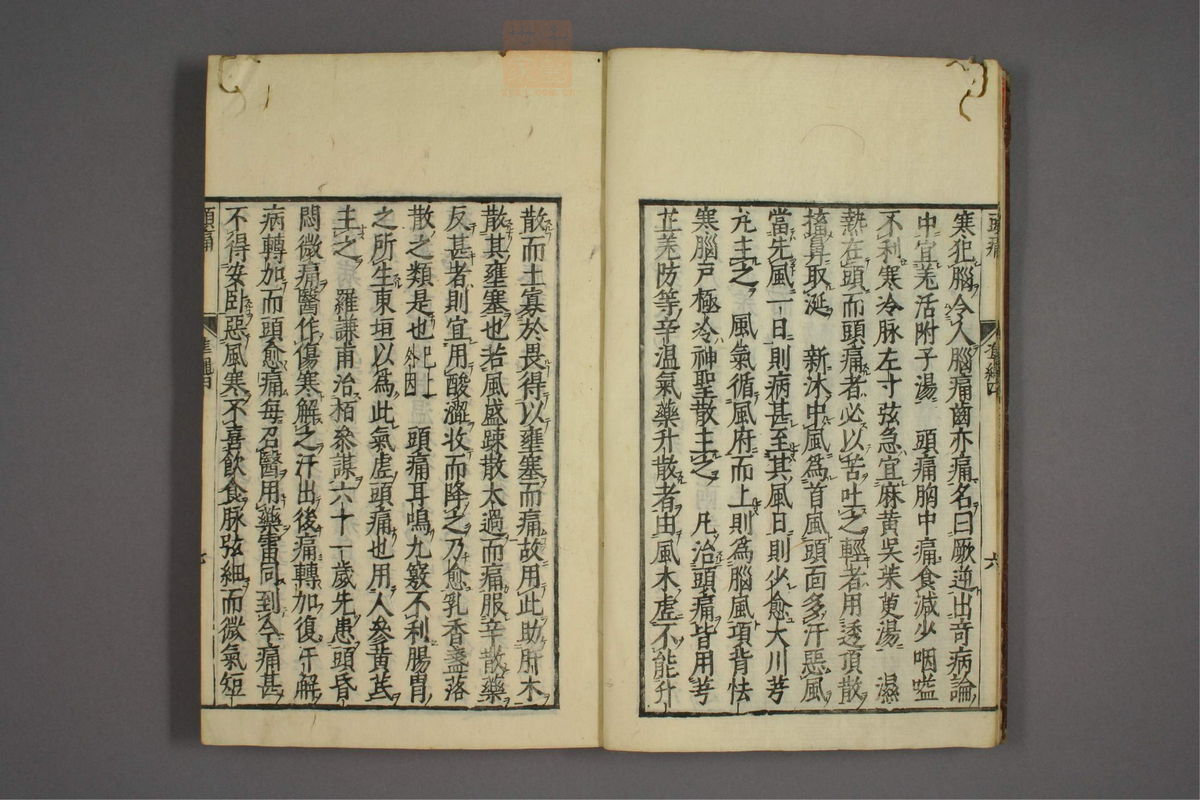 頭痛
六
寒犯腦冷入腦痛齒亦痛名曰厥逆出奇病論
中宜羌活附子湯　頭痛胸中痛食減少咽嗌
不利寒冷脉左寸弦急宜麻黄吳茱萸湯　濕
熱在頭而頭痛者必以苦吐之輕者用透頂散
搐鼻取涎　新沐中風爲首風頭面多汗惡風
當先風一日則病甚至其風日則少愈大川芎
元主之　風氣循風府而上則爲腦風項背怯
寒腦戸極冷神聖散主之　凡治頭痛皆用芎
芷羌防等辛温氣藥升散者由風木虚不能升
散而土寡於畏得以壅塞而痛故用此助肝木
散其壅塞也若風盛踈散太過而痛服辛散藥
反甚者則宜用酸澀收而降之乃愈乳香盞落
散之類是也已上外因　頭痛耳鳴九竅不利腸胃
之所生東垣以爲此氣虚頭痛也用人參黄芪
主之　羅謙甫治栢參謀六十一歳先患頭昏
悶微痛醫作傷寒解之汗出後痛轉加復汗解
病轉加而頭愈痛每召醫用藥雷同到今痛甚
不得安卧惡風寒不喜飲食脉弦細而微氣短
頭痛